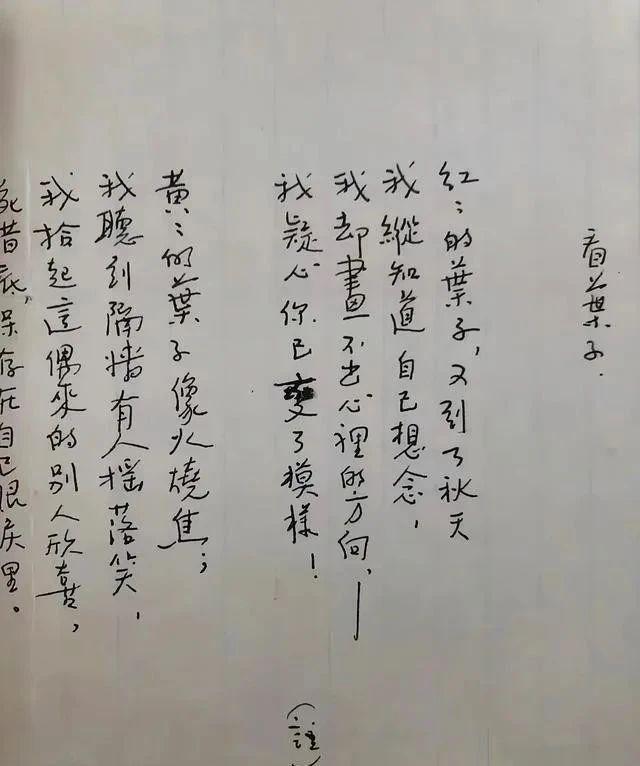 看葉子.
紅ミ的葉子，又到了秋天
我縱知道自己想念，
我却畫不出心裡的方向，——
我疑心你已變了模樣！
黃ミ的葉子像火燒焦；
我聽到隔墻有人搖落笑，
我拾起這偶來的別人欣喜，
昔 保存在自己眼淚里。
（註